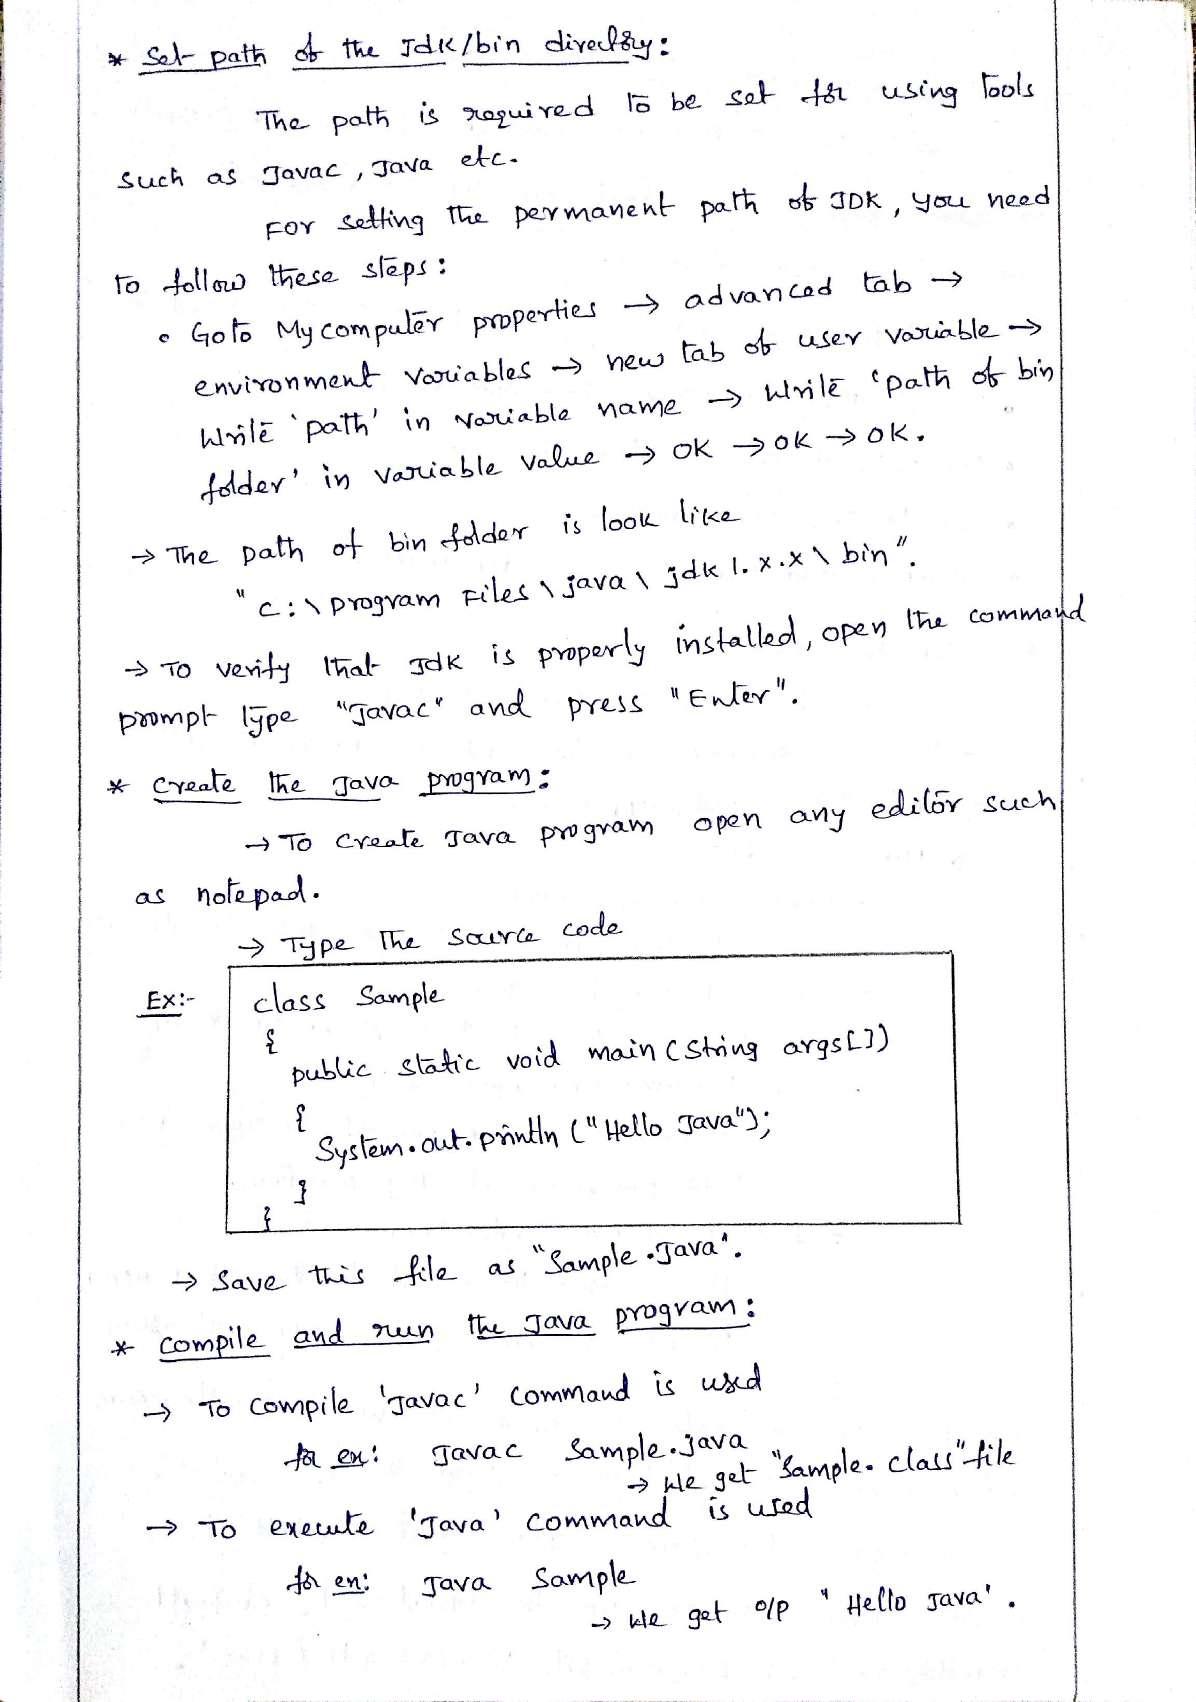 * Set path of the Jdk/bin directory:
The path is required to be set for using Tools
such as Javac, Java etc.
For setting the permanent path of JDK, you need
to follow these steps:
• Goto My computer properties → advanced tab →
environment variables → new tab of user variable →
Write 'path' in variable name → Write 'path of bin
folder' in variable value → OK → OK → OK.
→ The path of bin folder is look like
"C:\program Files\java\jdk 1.x.x\bin".
→ To verify that Jdk is properly installed, open the command
prompt type "Javac" and press "Enter".
* Create the Java program:
→ To Create Java program open any editor such
as notepad.
→ Type The source code
Ex:- class Sample
{
public static void main (String args[])
{
System.out.println ("Hello Java");
}
}
→ Save this file as "Sample.Java".
* compile and run the Java program:
→ To compile 'Javac' command is used
for ex: Javac Sample.java
→ We get "Sample.class" file
→ To execute 'Java' command is used
for ex: Java Sample
→ We get o/p ' Hello Java'.